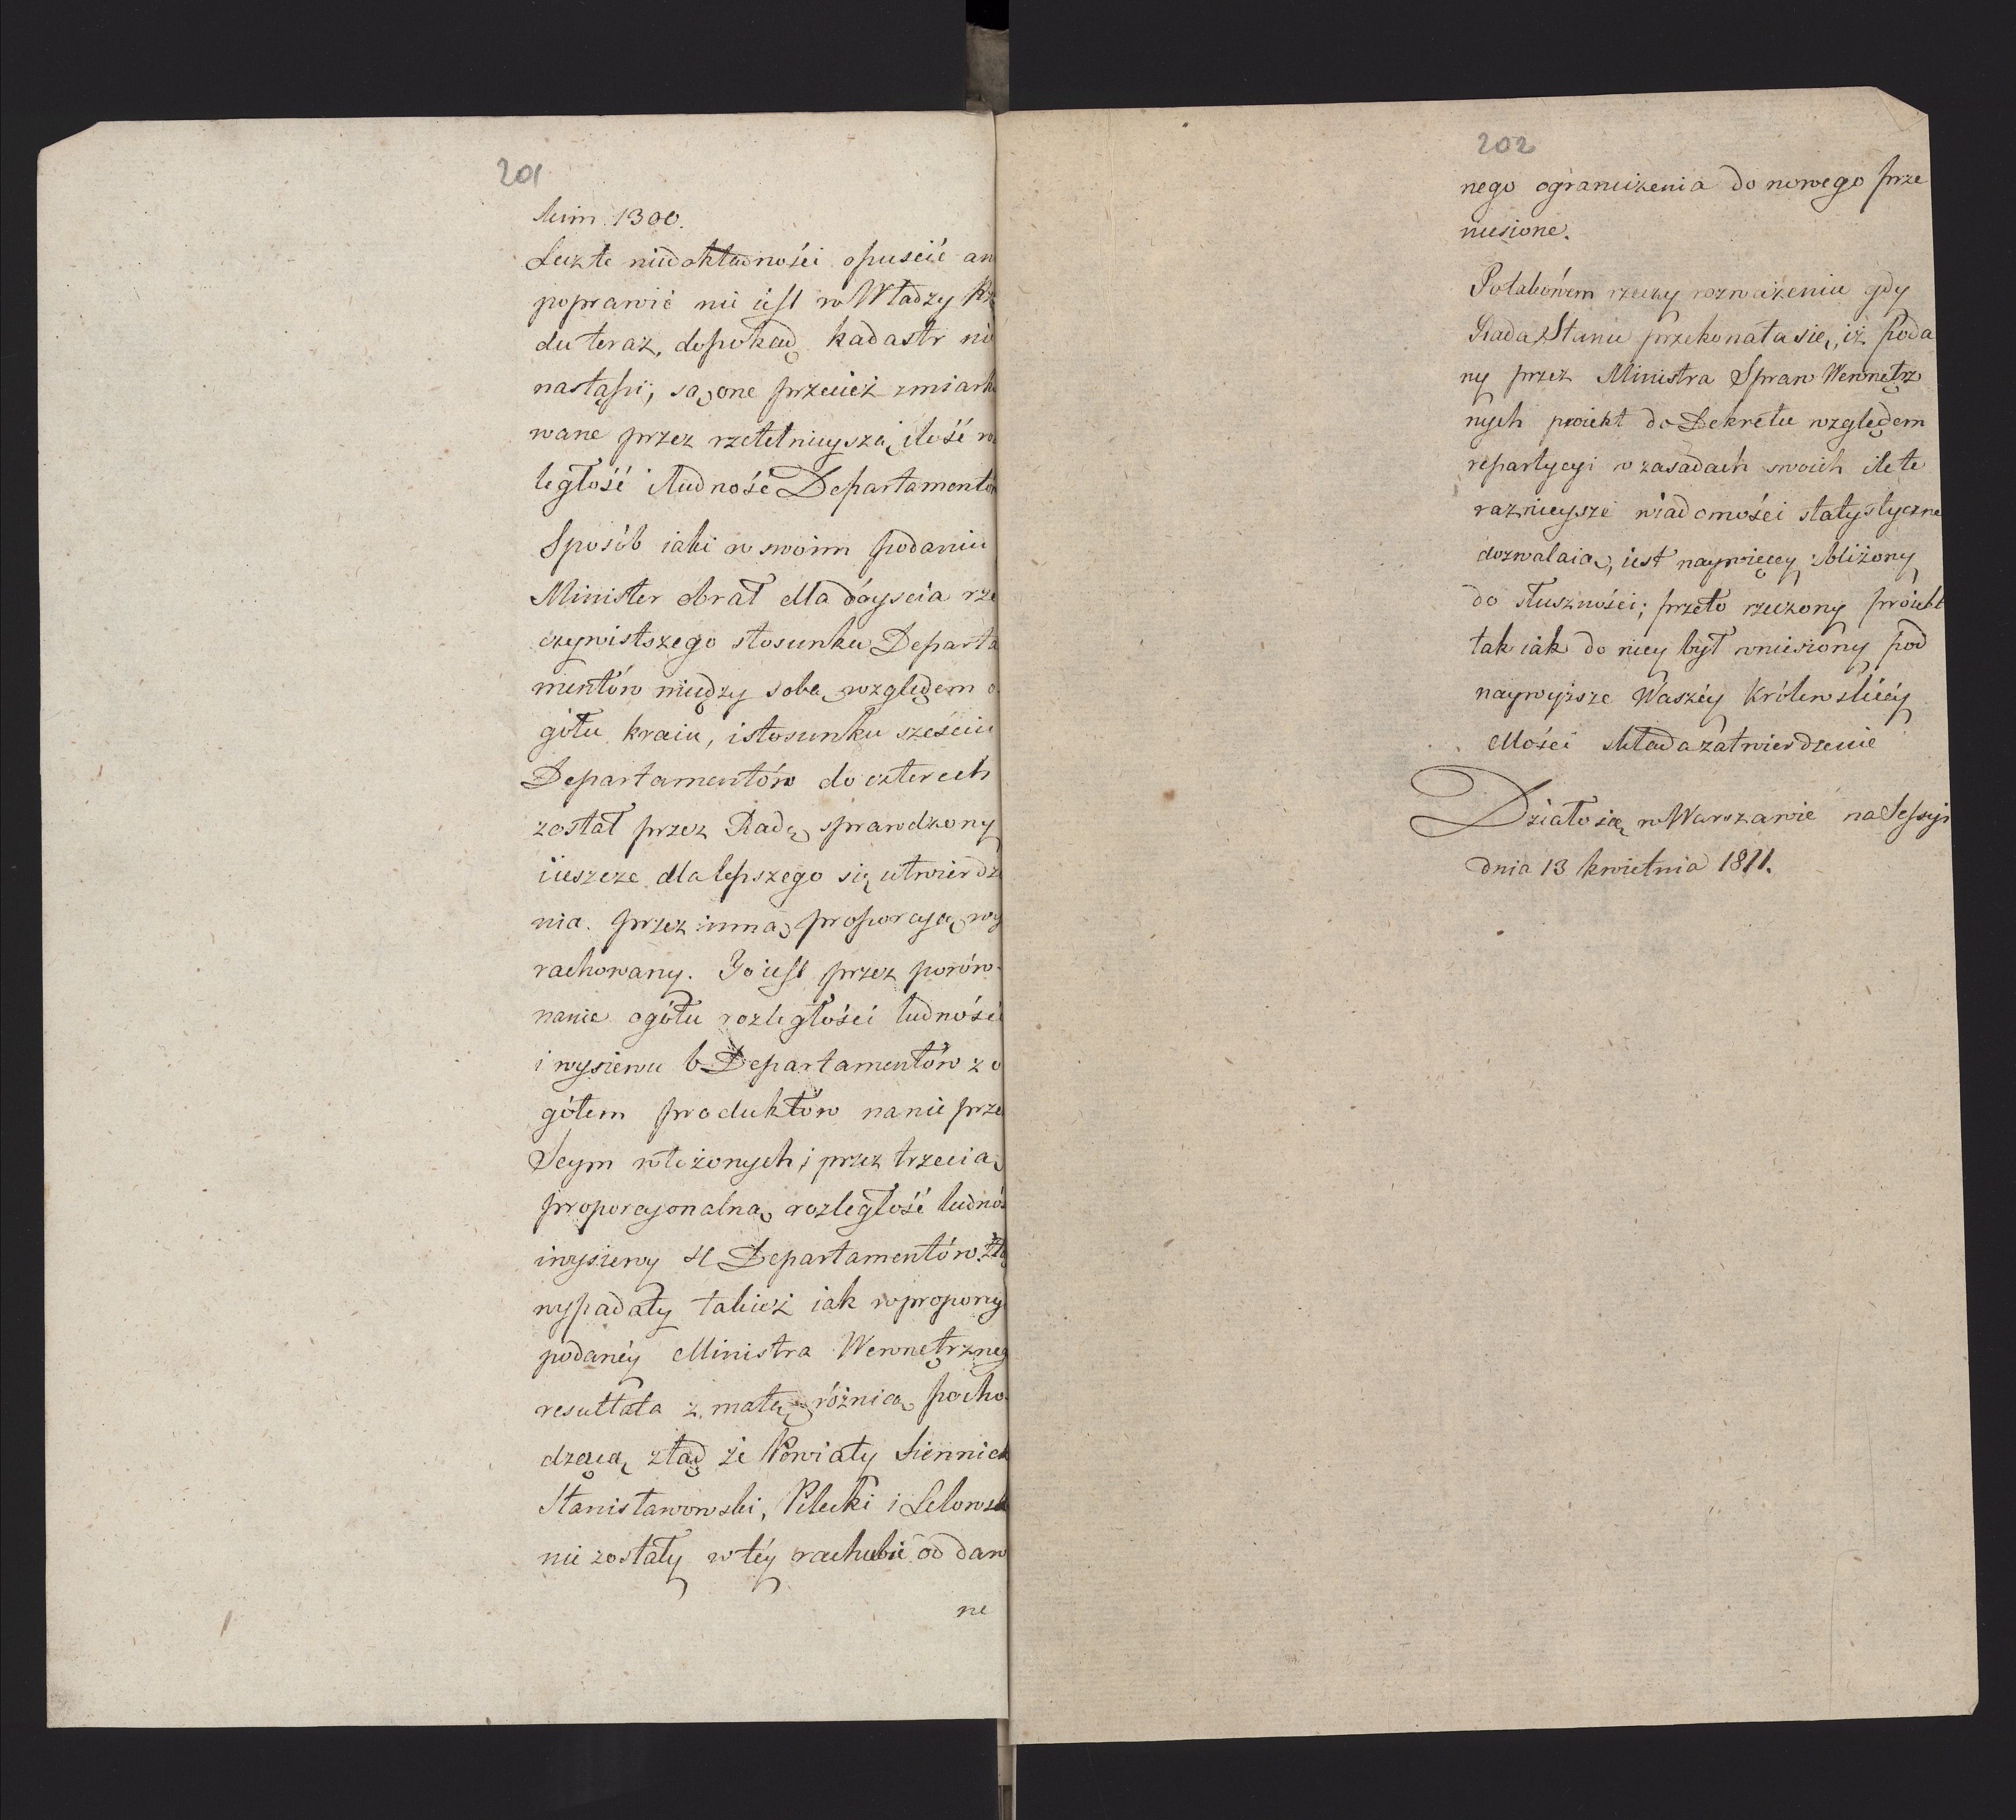 201
Mim 1300.
Lecz te niedokładności opuścić an
poprawić nie iest w Władzy Rzą
du teraz, dopokąd kadastr nie
nastąpi; są one przecież zmiarko
wane przez rzetelnieyszą ilość ro
ległość i ludność Departamentów
Sposób iaki w swoim podaniu
Minister obrał dla dóyścia rze
czywistszego stosunku Departa
mentów między sobą względem o
gółu kraiu, i stosunku sześciu
Departamentów do czterech
został przez Radę sprawdzony
ieszcze dla lepszego się utwierdze
nia przez inną proporcyą wy
rachowany. To iest przez porów
nanie ogółu rozległości ludności
i wysiewu 6 Departamentów z o
gółem produktów na nie prze
Seym włożonych; przez trzecią
proporcyonalną rozległość ludnoś
i wysiewy 4 Departamentów. Zło
wypadały takież iak w propony
podanéy Ministra Wewnętrzneg
resultata z małą różnicą pocho
dzącą ztąd że Powiaty Siennick
Stanisławowski, Pilecki i Lelowsk
nie zostały w téy rachubie od daw
ne
202
nego ograniczenia do nowego prze
niesione.
Po takowém rzeczy rozważeniu gdy
Rada Stanu przekonała się, iż poda
ny przez Ministra Spraw Wewnętrz
nych proiekt do Dekretu względem
repartycyi w zasadach swoich ile te
raznieysze wiadomości statystyczne
dozwalaią, iest naywięcey zbliżony
do słuszności; przeto rzeczony proiekt
tak iak do niey był wniesiony pod
naywyższe Waszéy Królewskiéy
Mości składa zatwierdzenie
Działo się w Warszawie na Sessyi
dnia 13 kwietnia 1811.